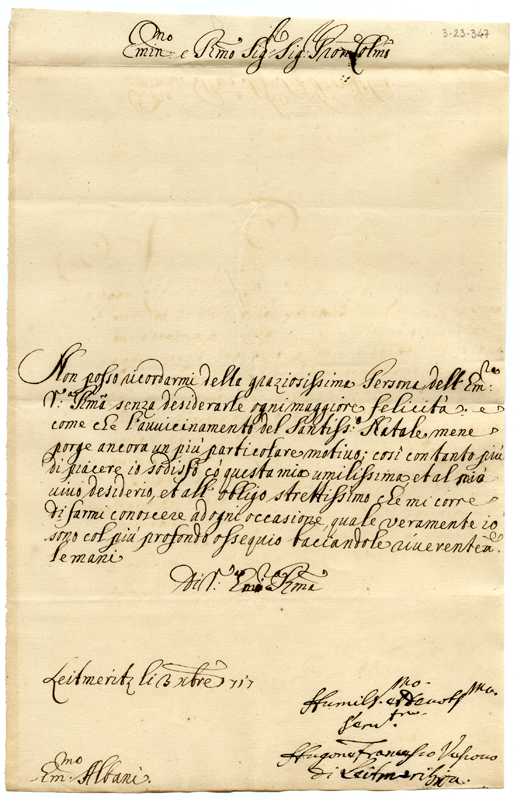 3-23-347
Emin.mo e Rmo Sig.r Sig.r Pron Colmo
Non posso ricordarmi della graziosissima Persona dell' Em:za
V.ra Rma senza desiderarle ogni maggiore felicità. e
come che l'avvicinamento del Santiss.o Natale mene
porge ancora un più particolare motivo; così con tanto più
di piacere io sodisfo cò questa mia umilissima et al mio
vivo desiderio, et all' obligo strettissimo che mi corre
di farmi conoscere ad ogni occasione, quale veramente io
sono col più profondo ossequio bacciandole riverente
le mani
Di V.ra Emza Rma
Leitmeritz li 3 xbre 717
Humilss.mo et Devotss.mo
Serv.tre
Hugone Francesco Vescovo
di Leitmeritz
Em.mo Albani.